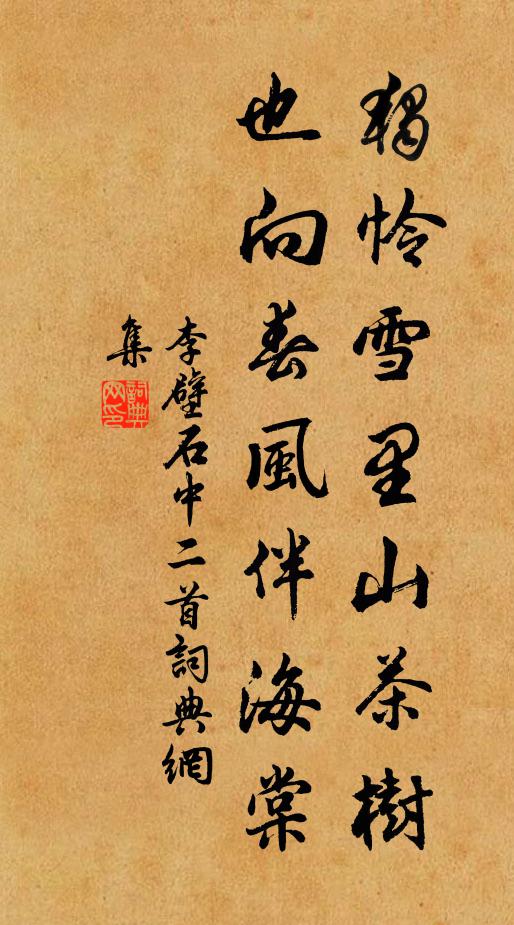 獨怜雪里山茶樹
也向春風伴海棠
李壁石中二首詞典網
集
詞典網印